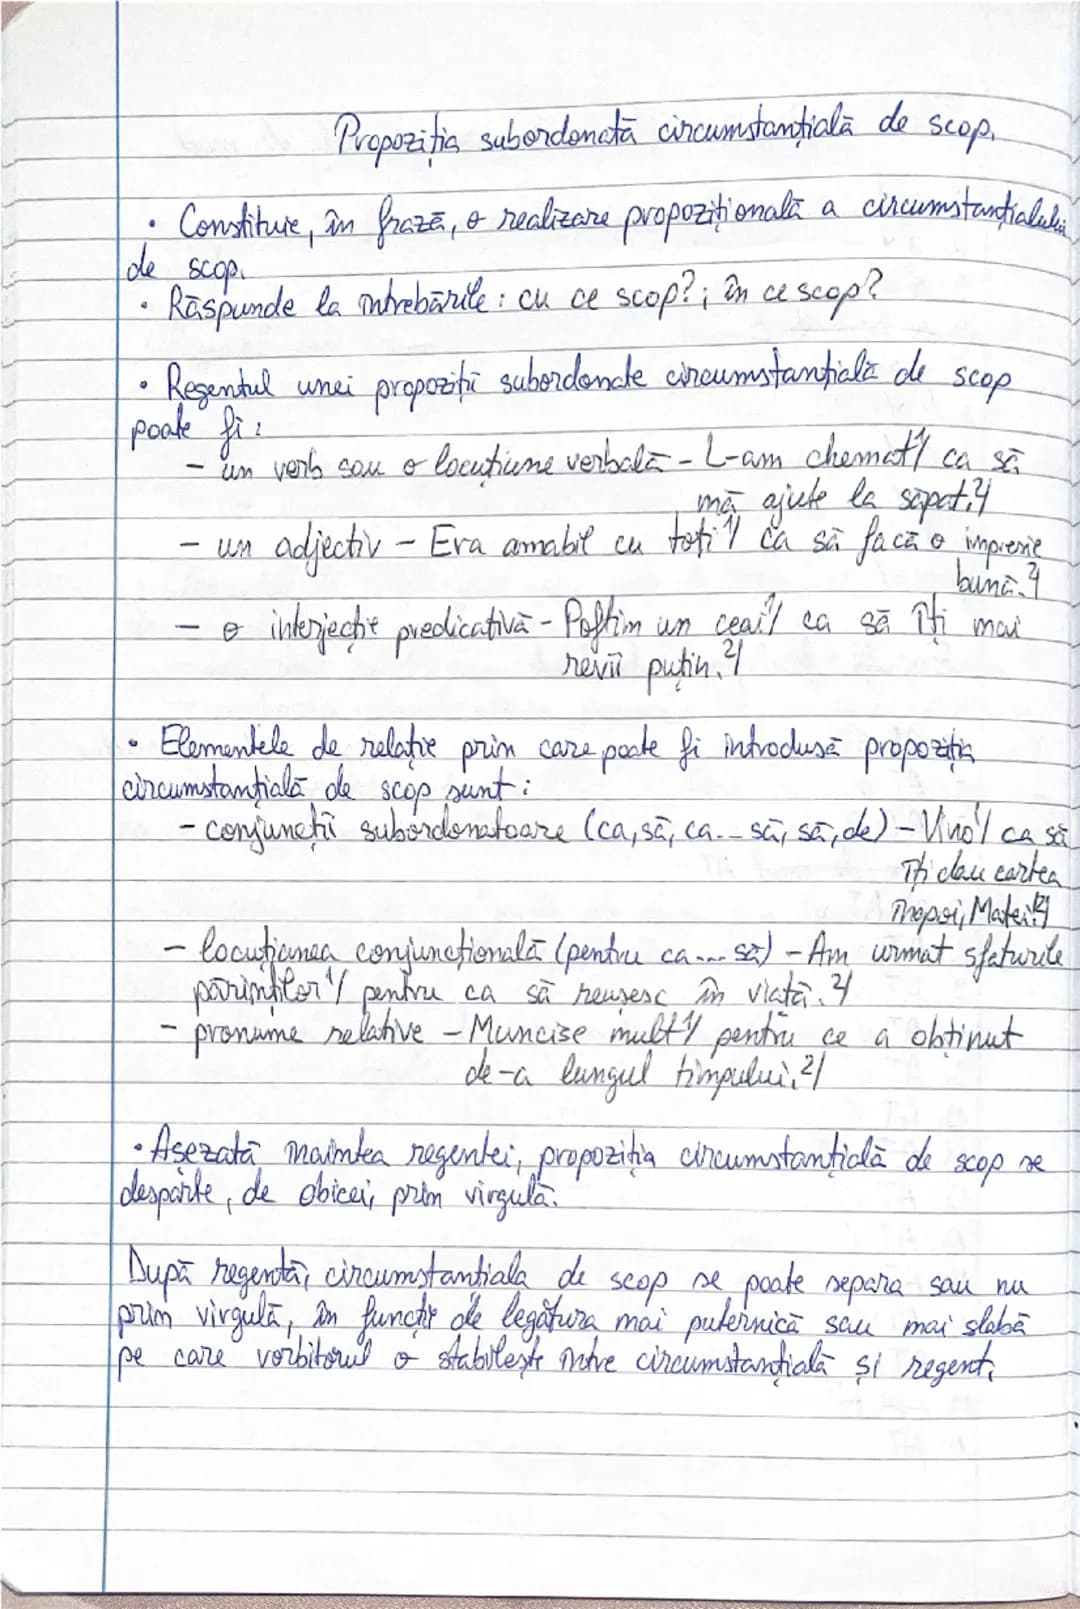 Propoziția subordonată circumstanțială de scop.
• Constituie, în frază, o realizare propozițională a circumstanțialului
de scop.
• Răspunde la întrebările: cu ce scop?; în ce scop?
• Regentul unei propoziții subordonate circumstanțială de scop
poate fi:
- un verb sau o locuțiune verbală - L-am chemat1/ ca să
mă ajute la săpat.2/
- un adjectiv - Era amabil cu toți1/ ca să facă o impresie
bună.2/
- o interjecție predicativă - Poftim un ceai1/ ca să îți mai
revii puțin.2/
• Elementele de relație prin care poate fi introdusă propoziția
circumstanțială de scop sunt:
- conjuncții subordonatoare (ca, să, ca... să, să, de) - Vino1/ ca să
îți dau cartea
înapoi, Matei!2/
- locuțiunea conjuncțională (pentru ca... să) - Am urmat sfaturile
părinților1/ pentru ca să reușesc în viață.2/
- pronume relative - Muncise mult1/ pentru ce a obținut
de-a lungul timpului.2/
• Așezată înaintea regentei, propoziția circumstanțială de scop se
desparte, de obicei, prin virgulă.
După regentă, circumstanțiala de scop se poate separa sau nu
prin virgulă, în funcție de legătura mai puternică sau mai slabă
pe care vorbitorul o stabilește între circumstanțială și regent.